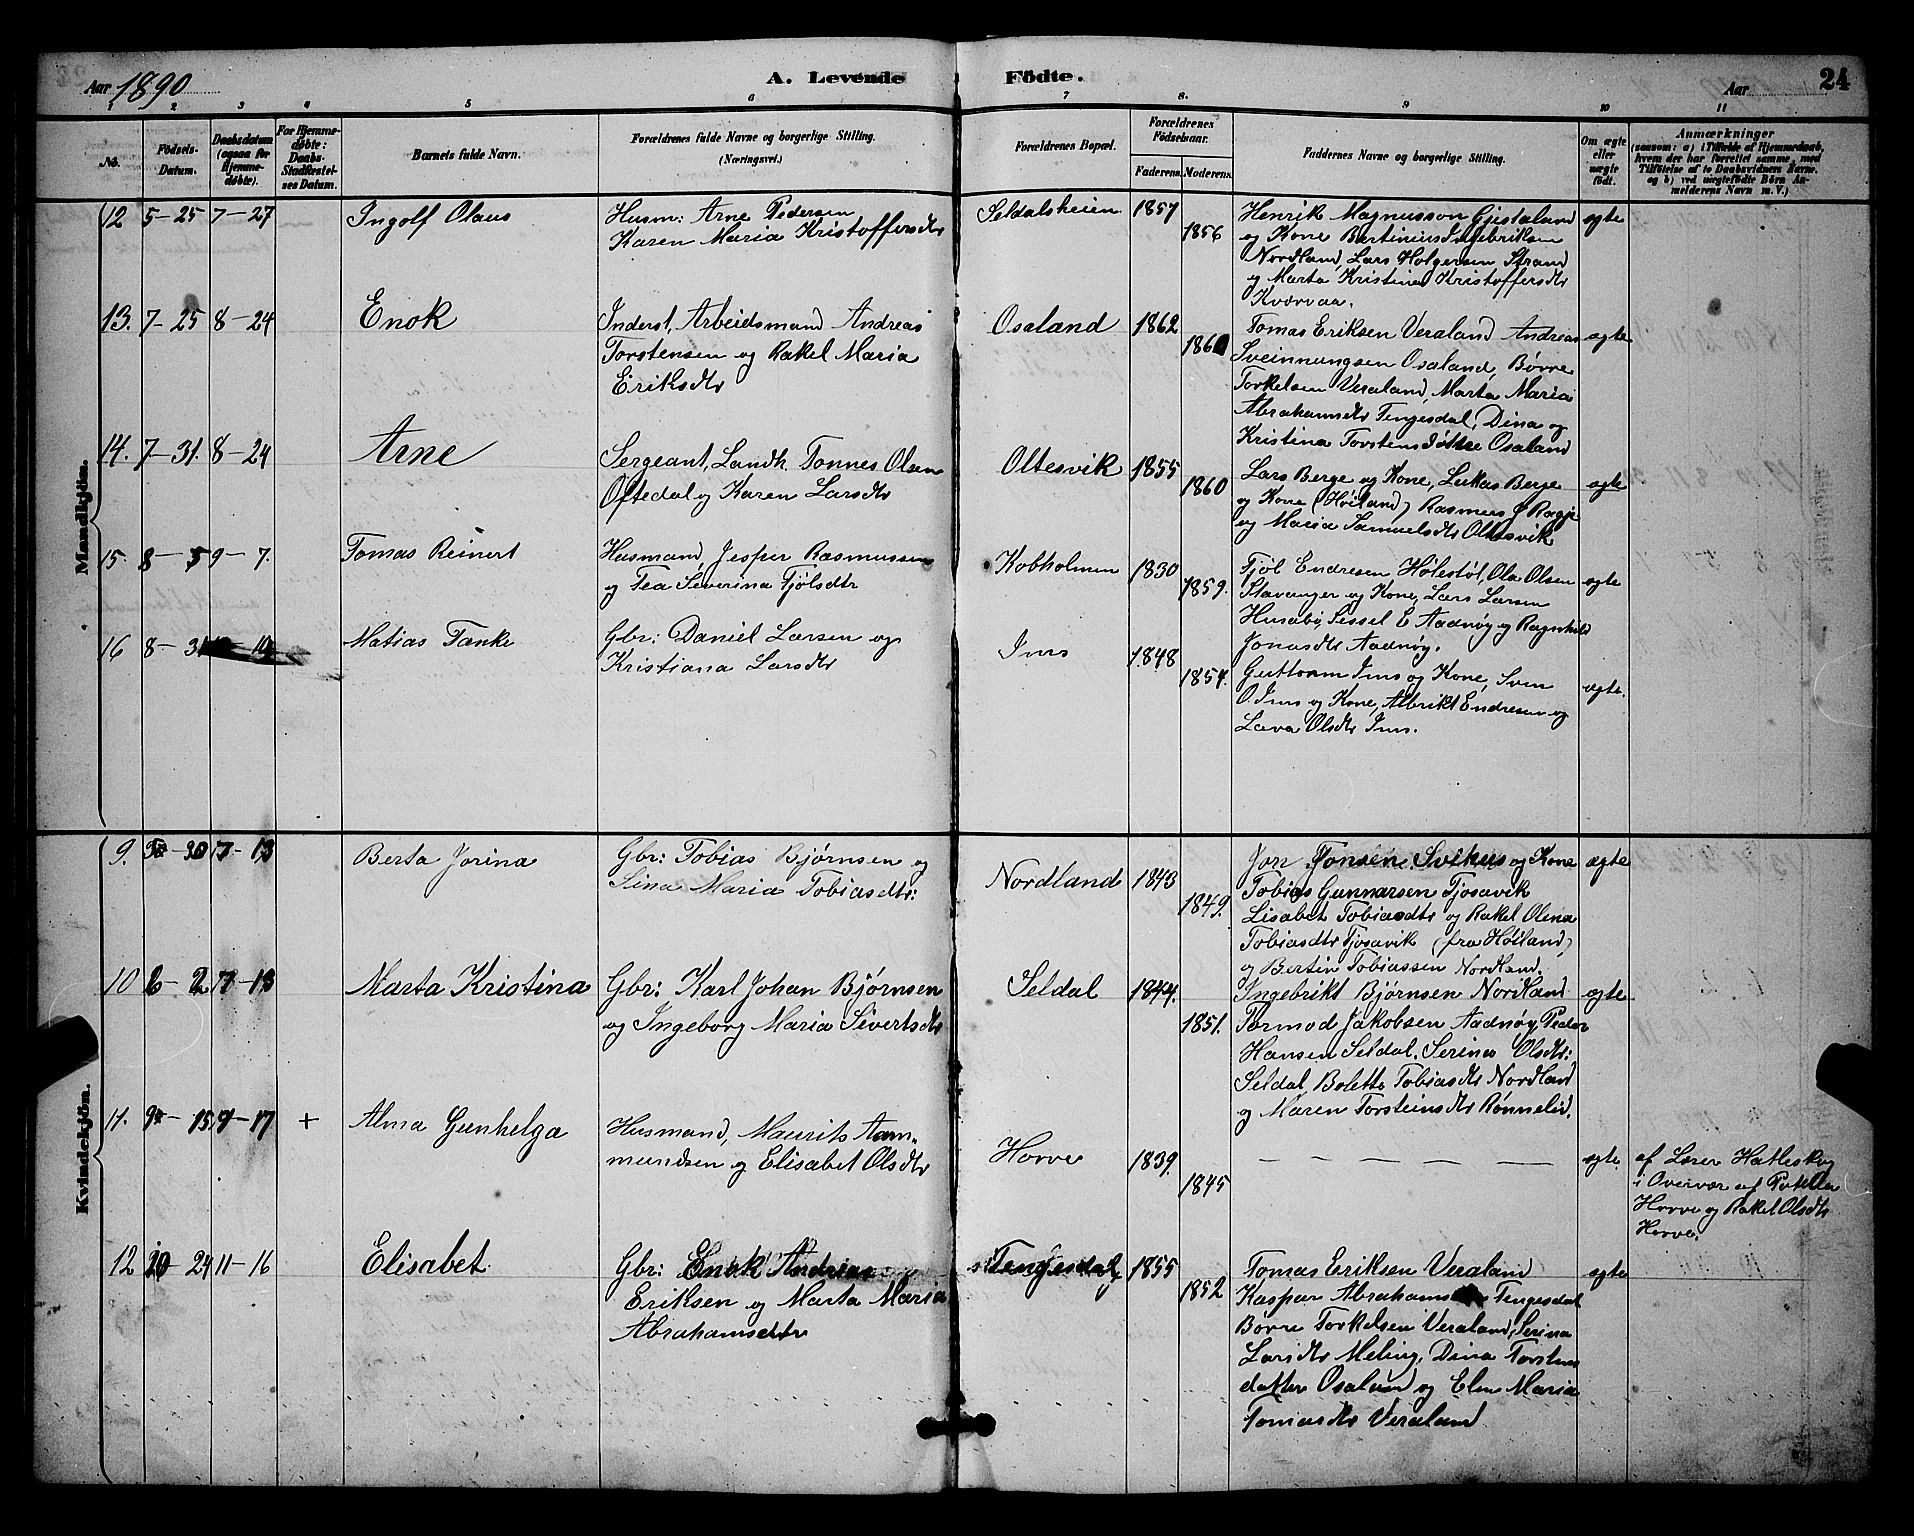 Aar 1890
A. Levende Födte.
Aar
24
1 2 3 4 5 6 7 8. 9 10 11
No.
Födsels-Datum.
Daabsdatum (ogsaa for Hjemme-döbte).
For Hjemme-döbte: Daabs-Stadfæstel-ses Datum.
Barnets fulde Navn.
Forældrenes fulde Navne og borgerlige Stilling.
(Næringsvei.)
Forældrenes Bopæl.
Forældrenes Födselsaar.
Faderens. Moderens.
Faddernes Navne og borgerlige Stilling.
Om ægte eller uægte födt.
Anmærkninger
(saasom: a) i Tilfælde af Hjemmedaab, hvem der har forrettet samme, med Tilföielse af to Daabsvidners Navne, og b) ved uægtefödte Börn An-melderens Navn m. V.)
Mandkjön.
12 5-25 7-27 Ingolf Olaus
Husm: Arne Pedersen
Karen Maria Kristoffersdtr
Seldalsheien 1857 1856
Henrik Magnusson Gjestaland
og Kone Bertinius Ingebriksen
Nordland, Lars Holgersen Strand
og Marta Kristina Kristoffersdtr
Kværvaa.
ægte
13. 7-25 8-24 Enok
Inderst, Arbeidsmand Andreas
Torstensen og Rakel Maria
Eriksdtr
Osaland 1862 1860
Tomas Eriksen Veraland Andreas
Sveinnungsen Osaland, Børre
Torkelsen Veraland, Marta Maria
Abrahamsdtr Tengesdal, Dina og
Kristina Torstensdöttre Osaland
ægte
14. 7-31. 8-24 Arne
Sergeant, Landh. Tonnes Olsen
Oftedal og Karen Larsdtr
Oltesvik 1855 1860
Lars Berge og Kone, Lukas Berge
og Kone (Høiland) Rasmus
og Maria Samuelsdtr Oltesvik
ægte
15. 8-5 9-7. Tomas Reinert
Husmand, Jesper Rasmussen
og Tea Severina Fjølsdtr
Kobholmen 1830 1859.
Fjöl Endresen Hølestøl, Ola Olsen
Stavanger og Kone, Lars Larsen
Husabø, Sessel E Aadnøy og Ragnhild
Jonasdtr Aadnøy.
ægte
16 8-31 Matias Tanke
Gbr: Daniel Larsen og
Kristiana Larsdtr
Ims 1848 1854.
Guttorm Ims og Kone, Sven
O. Ims og Kone, Albrikt Endresen og
Lava Olsdtr Ims.
ægte.
Kvindekjön.
9. 7-13 Berta Jorina
Gbr: Tobias Bjørnsen og
Sina Maria Tobiasdtr:
Nordland 1843 1849.
Jon Jonsen Svihus og Kone
Tobias Gunnarsen Tjosavik
Lisabet Tobiasdtr og Rakel Olena
Tobiasdtr Tjosavik (fra Høiland)
og Bertin Tobiassen Nordland.
ægte
10 6-2 7-13 Marta Kristina
Gbr: Karl Johan Bjørnsen
og Ingeborg Maria Sivertsdtr
Seldal 1844. 1851.
Ingebrikt Bjørnsen Nordland
Tormod Jakobsen Aadnøy, Peder
Hansen Seldal, Serina Olsdtr:
Seldal, Bolette Tobiasdtr Nordland
og Maren Torsteinsdtr Rønnelid.
ægte
11. 9-15 9-17 + Alma Gunhelga
Husmand, Maurits Aam-
mundsen og Elisabet Olsdtr
Horve 1839. 1845
— — — — —
ægte
af Lærer Hatleskog
i Overvær af
Horve og Rakel Olsdtr
Horve.
12 10-24 11-16 Elisabet
Gbr: Enok Andreas
Eriksen og Marta Maria
Abrahamsdtr
Tengesdal 1855 1852
Tomas Eriksen Veraland
Kaspar Abrahamsen Tengesdal
Børre Torkelsen Veraland, Serina
Larsdtr Meling, Dina Torstens
datter Osaland og Elen Maria
Tomasdtr Veraland
ægte